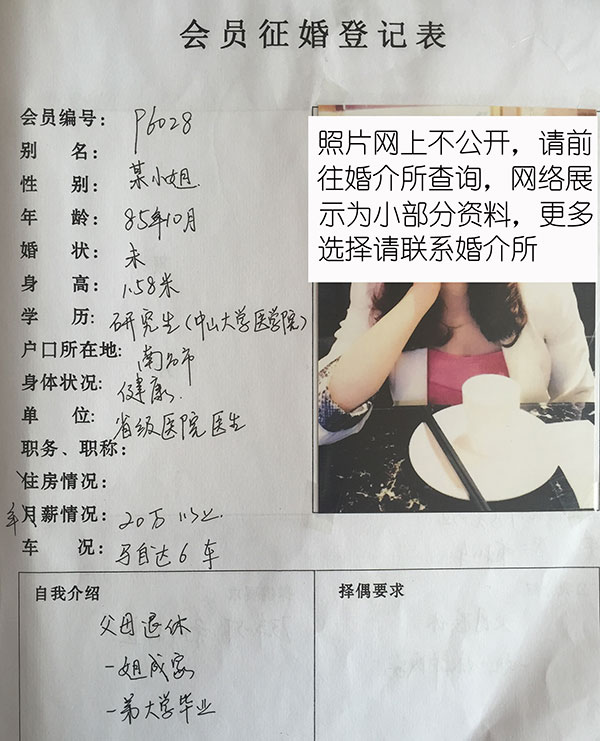 会员征婚登记表
会员编号: P6028
别 名:
性 别: 某小姐
年 龄: 85年10月
婚 状: 未
身 高: 1.58米
学 历: 研究生(中山大学医学院)
户口所在地: 南宁市
身体状况: 健康
单 位: 省级医院医生
职务、职称:
住房情况:
年月薪情况: 20万以上
车 况: 马自达6车
照片网上不公开，请前
往婚介所查询，网络展
示为小部分资料，更多
选择请联系婚介所
自我介绍
父母退休
一姐成家
一弟大学毕业
择偶要求